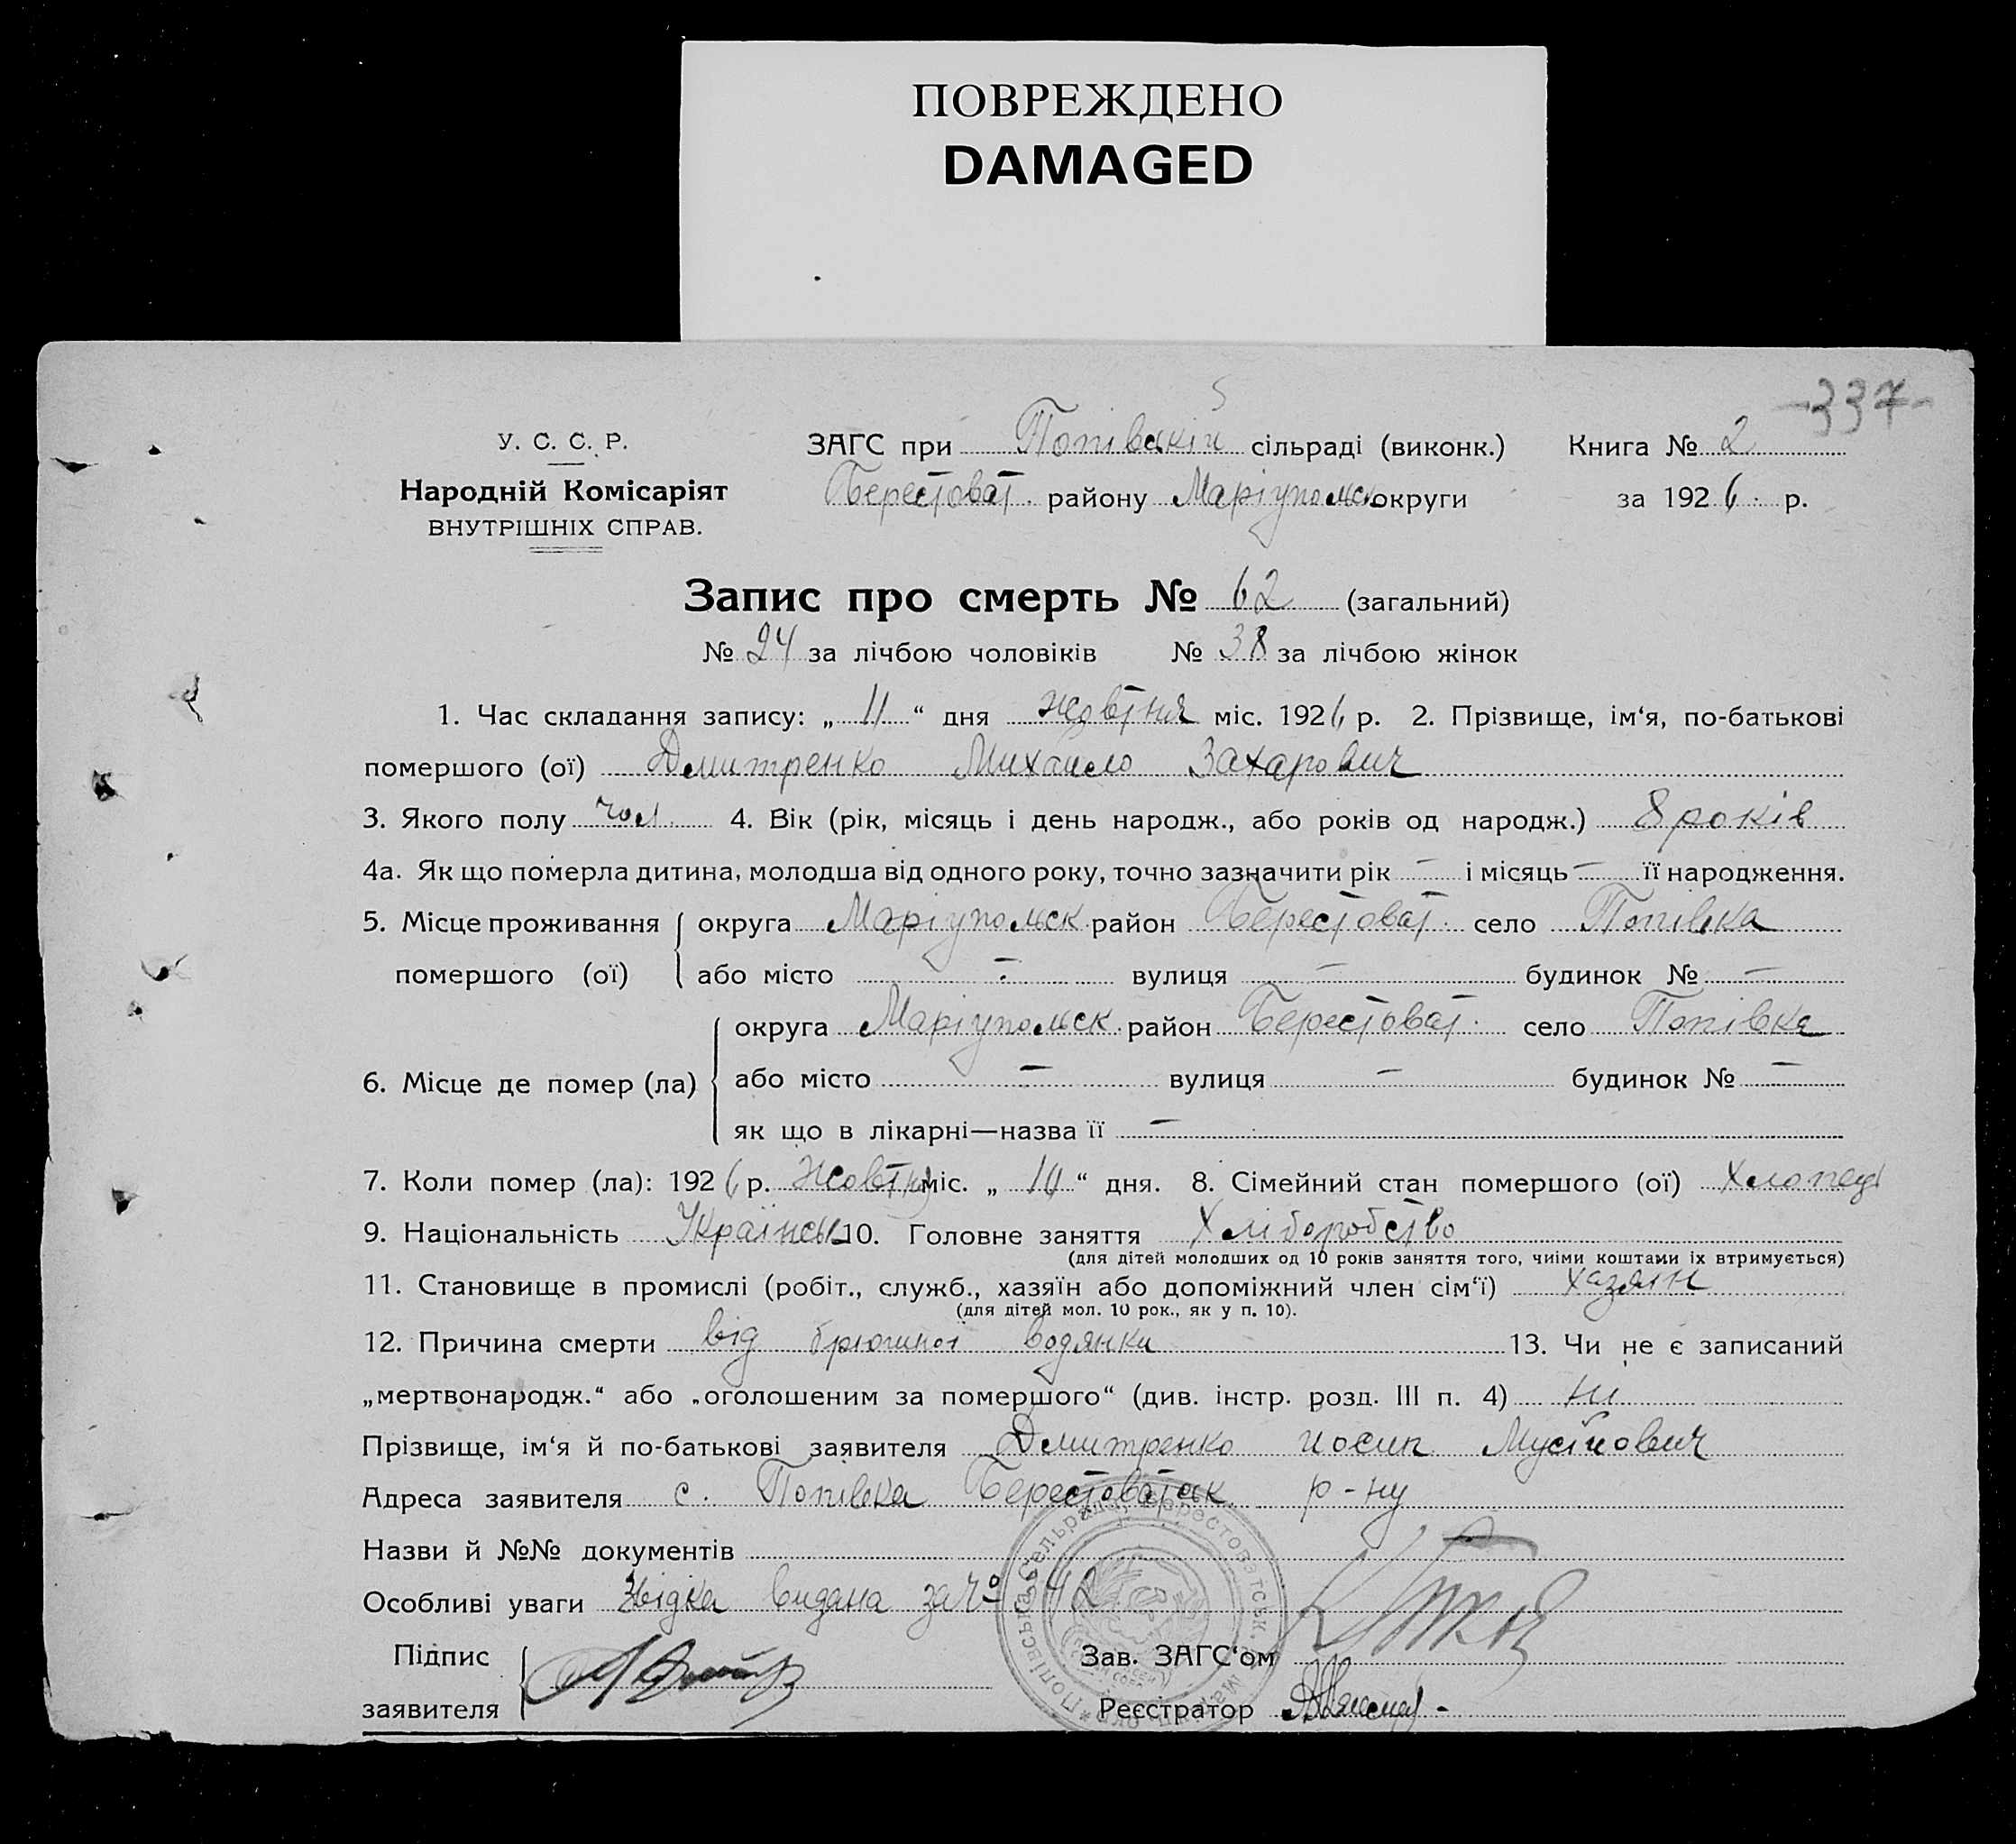 ПОВРЕЖДЕНО
DAMAGED
-337-
У. С. С. Р.
Народній Комісаріят
ВНУТРІШНІХ СПРАВ.
ЗАГС при Попівській сільраді (виконк.) Книга № 2
Берестоват. району Маріупольск округи за 1926 р.
Запис про смерть № 62 (загальний)
№ 24 за лічбою чоловіків № 38 за лічбою жінок
1. Час складання запису: „ 11 “ дня жовтня міс. 1926 р. 2. Прізвище, ім‘я, по-батькові
помершого (ої) Дмитренко Михайло Захарович
3. Якого полу чол. 4. Вік (рік, місяць і день народж., або років од народж.) 8 років
4а. Як що померла дитина, молодша від одного року, точно зазначити рік — і місяць — її народження.
5. Місце проживання округа Маріупольск. район Берестоват. село Попівка
помершого (ої) або місто — вулиця — будинок № —
округа Маріупольск. район Берестоват. село Попівка
6. Місце де помер (ла) або місто — вулиця — будинок № —
як що в лікарні—назва її —
7. Коли помер (ла): 1926 р. Жовтня міс. „ 10 “ дня. 8. Сімейний стан помершого (ої) хлопець
9. Національність 10. Головне заняття Хліборобство
(для дітей молодших од 10 років заняття того, чиїми коштами їх втримується)
11. Становище в промислі (робіт., служб., хазяїн або допоміжний член сім‘ї) хазяїн
(для дітей мол. 10 рок., як у п. 10).
12. Причина смерти від брюшної водянки 13. Чи не є записаний
„мертвонародж.“ або „оголошеним за помершого“ (див. інстр. розд. III п. 4) ні
Прізвище, ім‘я й по-батькові заявителя Дмитренко Йосип Мусійович
Адреса заявителя с. Попівка Берестоватск р-ну
Назви й №№ документів
Особливі уваги видана за №
Підпис
заявителя
Зав. ЗАГС‘ом
Реєстратор